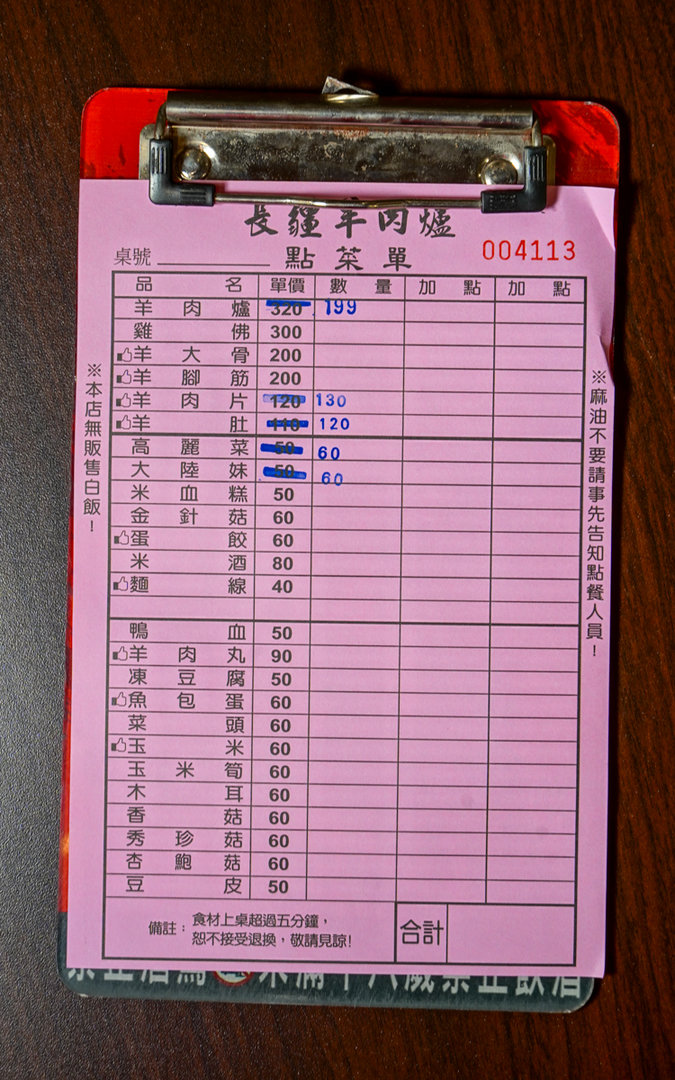 長疆羊肉爐
點菜單
004113
桌號
品名 單價 數量 加點 加點
羊肉爐 320 199
雞佛 300
羊大骨 200
羊腳筋 200
羊肉片 120 130
羊肚 110 120
高麗菜 50 60
大陸妹 50 60
米血糕 50
金針菇 60
蛋餃 60
米酒 80
麵線 40
鴨血 50
羊肉丸 90
凍豆腐 50
魚包蛋 60
菜頭 60
玉米 60
玉米筍 60
木耳 60
香菇 60
秀珍菇 60
杏鮑菇 60
豆皮 50
備註：食材上桌超過五分鐘，
恕不接受退換，敬請見諒!
合計
※本店無販售白飯！
※麻油不要請事先告知點餐人員！
未滿十八歲禁止飲酒